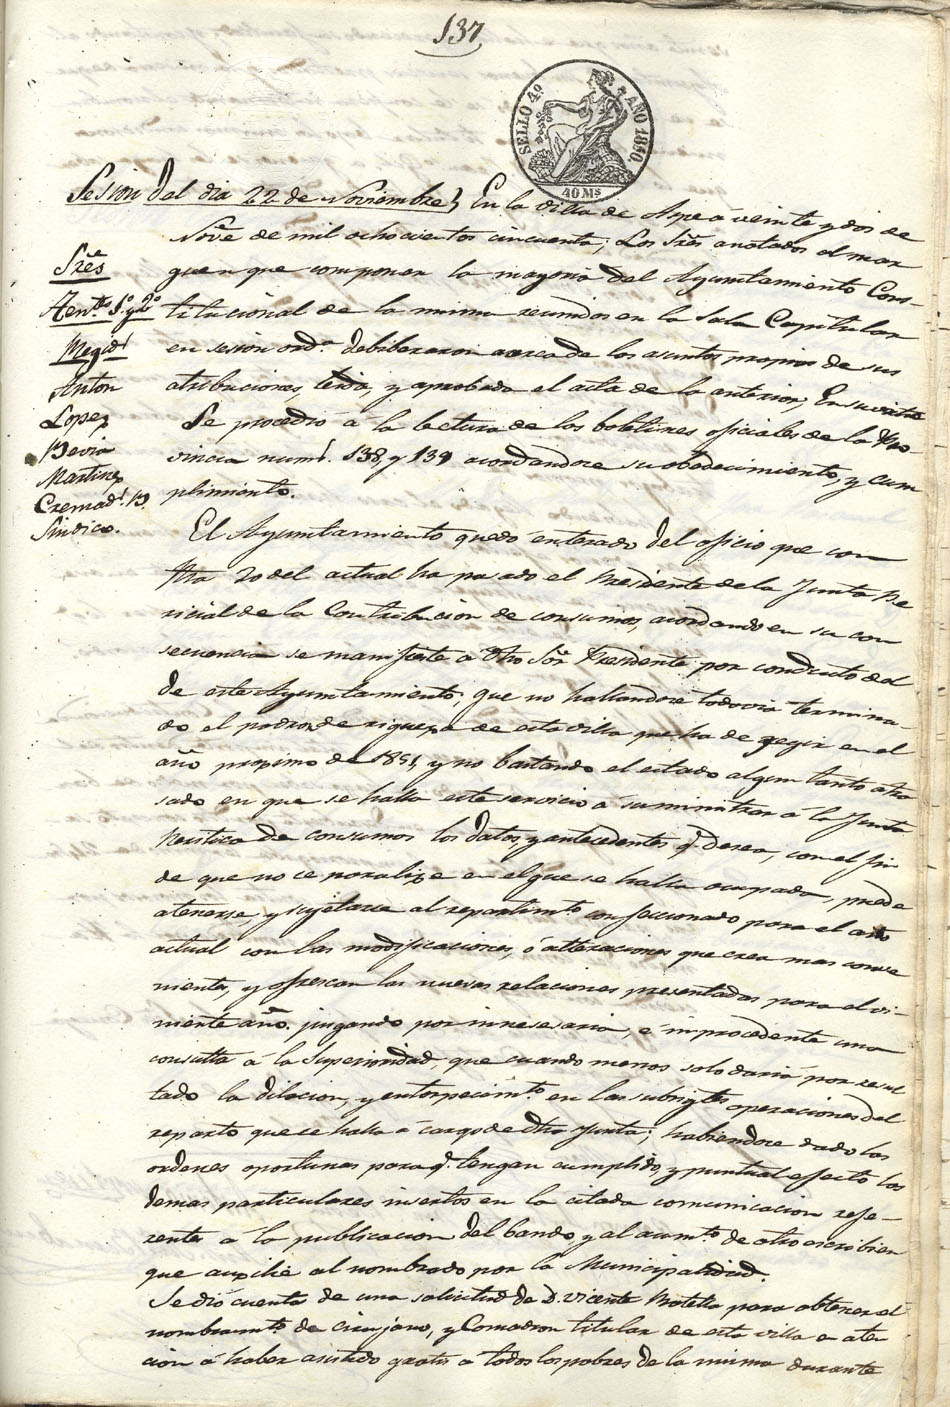 137
SELLO 4º AÑO 1850.
40 Ms
Sesion del dia 22 de Noviembre} En la villa de Aspe á veinte y dos de
Nov.e de mil ochocientos cincuenta; Los Sres anotados al mar
guen que componen la mayoria del Ayuntamiento Cons-
titucional de la misma reunidos en la Sala Capitular
en sesion ord.a deliberaron acerca de los asuntos propios de sus
atribuciones, leida, y aprobada el acta de la anterior; En su virtud
Se procedió á la lectura de los boletines oficiales de la Pro-
vincia num.s 138, y 139 acordandose su obedecimiento, y cum
plimiento.
Sres
Tent.es 1.º y 2.º
Regid.s
Anton
Lopez
Bevia
Martinez
Cremad.s B.
Sindico.
El Ayuntamiento quedó enterado del oficio que con
fha 20 del actual ha pasado el Presidente de la Junta pe
ricial de la Contribucion de consumos, acordando en su con
secuencia se manifieste a dho Sor Presidente por conducto del
de este Ayuntamiento, que no hallandose todavia termina-
do el padron de riqueza de esta villa que ha de regir en el
año proximo de 1851, y no bastando el estado algun tanto atra
sado en que se halla este servicio á suministrar á la Junta
Peritica de consumos los datos, y antecedentes q.e desea, con el fin
de que no se paralize en el que se halla ocupada, puede
atenerse, y sujetarse al repartim.to confeccionado para el año
actual con las modificaciones, ó alteraciones que crea mas conve
niente, y ofrescan las nuevas relaciones presentadas para el vi-
niente año. juzgando por innesesaria, e improcedente una
consulta á la Superioridad, que cuando menos solo daria por resul
tado la dilacion, y entorpecim.to en las subsig.tes operaciones del
reparto que se halla á cargo de dha Junta; habiendose dado las
ordenes oportunas para q.e tengan cumplido, y puntual efecto los
demas particulares insertos en la citada comunicacion refe-
rente á la publicacion del bando y al aum.to de otro escribien
que auxilie al nombrado por la Municipalidad.
Se dió cuenta de una solicitud de D. Vicente Botella para obtener el
nombram.to de cirujano, y Comadron titular de esta villa en aten
cion á haber asistido gratis a todos los pobres de la misma durante